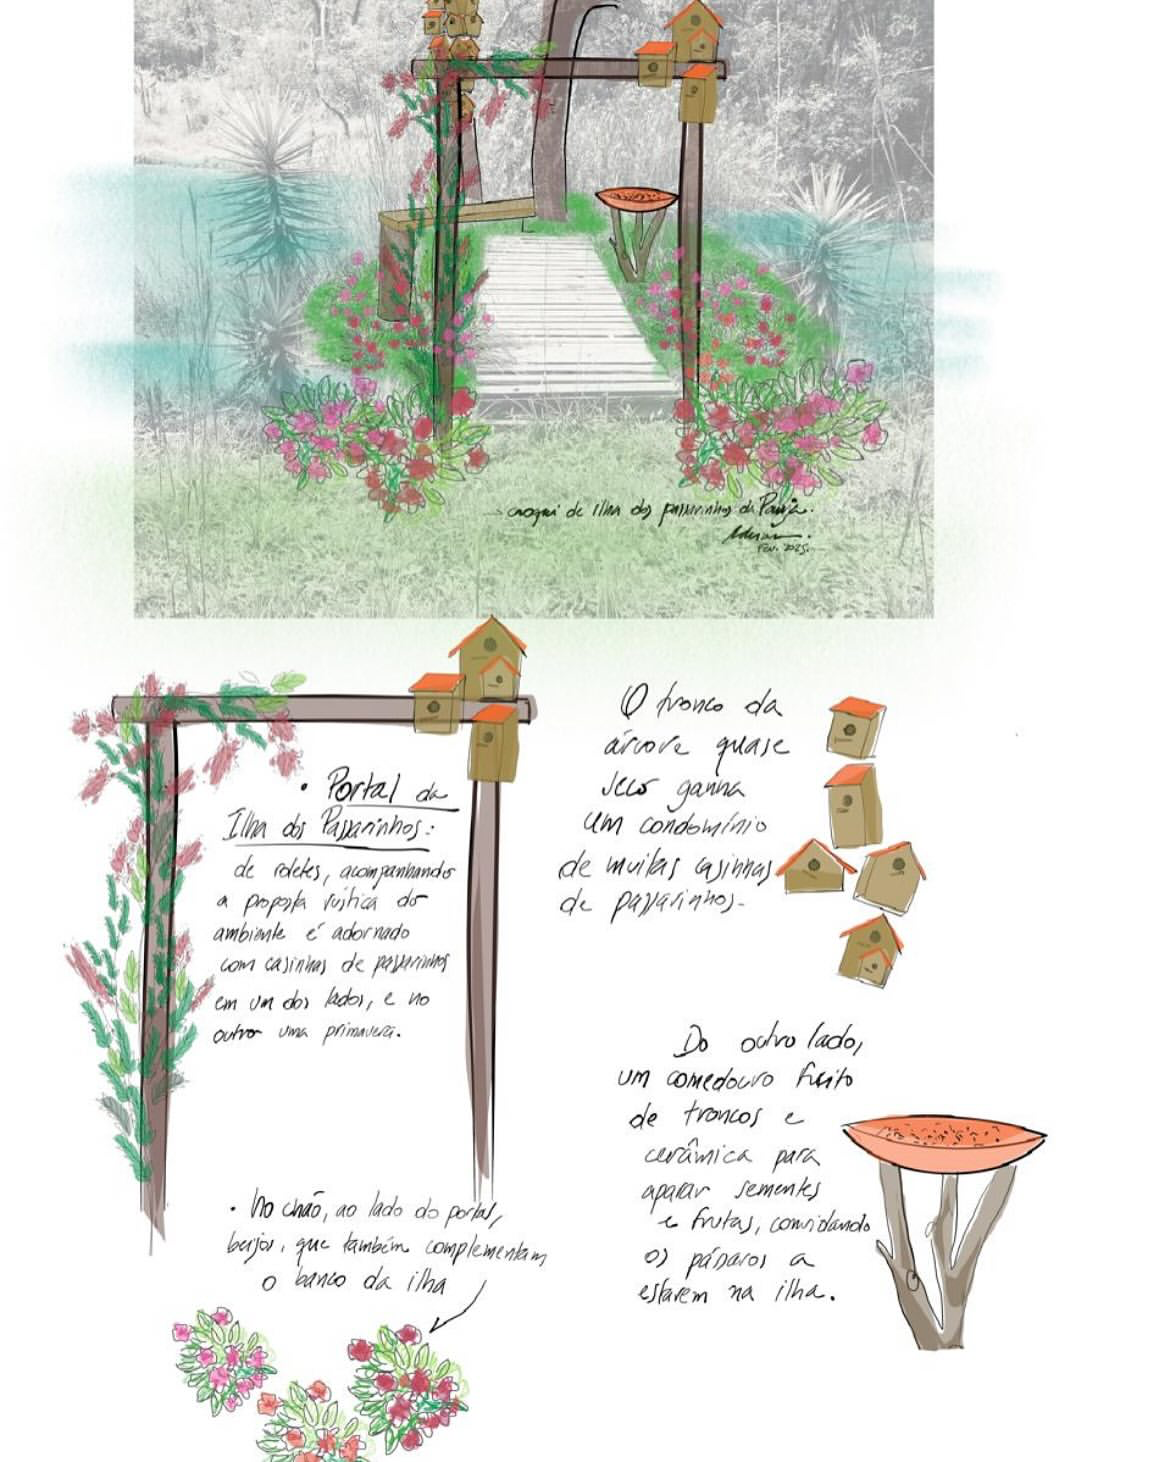 croqui de ilha dos passarinhos da
Fev. 2025.
• Portal da
Ilha dos Passarinhos:
de roletes, acompanhando
a proposta rústica do
ambiente é adornado
com casinhas de passarinhos
em um dos lados, e no
outro uma primavera.
O tronco da
árvore quase
seco ganha
um condomínio
de muitas casinhas
de passarinhos.
Do outro lado,
um comedouro feito
de troncos e
cerâmica para
aparar sementes
e frutas, convidando
os pássaros a
estarem na ilha.
• No chão, ao lado do portal,
beijos, que também complementam
o banco da ilha